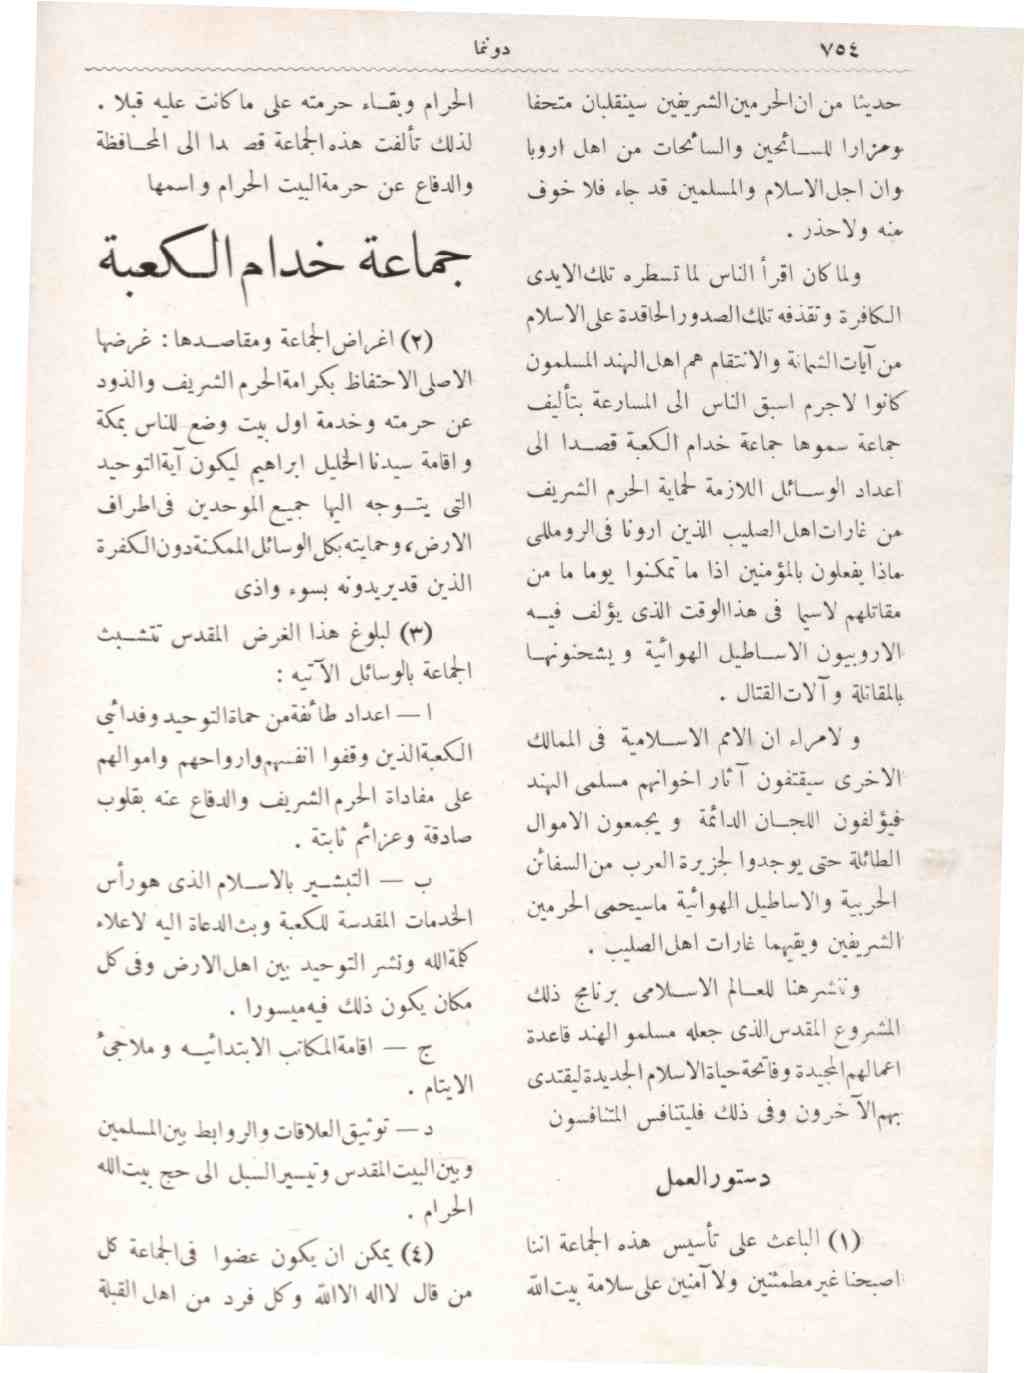 ٧٥٤
دونما
حديثا من ان الحرمين الشريفين سينقلبان متحفا
ومزارا للسـائحين والسائحات من اهل اروبا
وان اجل الاسلام والمسلمين قد جاء فلا خوف
منه ولا حذر .
ولما كان اقرأ الناس لما تسطره تلك الايدى
الكافرة وتقذفه تلك الصدور الحاقدة على الاسلام
من آيات الشماتة والانتقام هم اهل الهند المسلمون
كانوا لاجرم اسبق الناس الى المسارعة بتأليف
جماعة سموها جماعة خدام الكعبة قصـدا الى
اعداد الوسـائل اللازمة لحماية الحرم الشريف
من غارات اهل الصليب الذين ارونا فى الرومللى
ماذا يفعلون بالمؤمنين اذا ما تمكنوا يوما ما من
مقاتلهم لاسيما فى هذا الوقت الذى يؤلف فيـه
الاروبيون الاسـاطيل الهوائية ويشحنونهـا
بالمقاتلة وآلات القتال .
ولامراء ان الامم الاسـلامية فى الممالك
الاخرى سيقتفون آثار اخوانهم مسلمى الهند
فيؤلفون اللجـان الدائمة ويجمعون الاموال
الطائلة حتى يوجدوا لجزيرة العرب من السفائن
الحربية والاساطيل الهوائية ماسيحمى الحرمين
الشريفين ويقيهما غارات اهل الصليب .
وننشر هنا للعـالم الاسـلامى برنامج ذلك
المشروع المقدس الذى جعله مسلمو الهند قاعدة
اعمالهم المجيدة وفاتحة حياة الاسلام الجديدة ليقتدى
بهم الآخرون وفى ذلك فليتنافس المتنافسون
دستور العمل
(١) الباعث على تأسيس هذه الجماعة اننا
اصبحنا غير مطمئنين ولا آمنين على سلامة بيت الله
الحرام وبقـاء حرمته على ما كانت عليه قبلا .
لذلك تألفت هذه الجماعة قصدا الى المحـافظة
والدفاع عن حرمة البيت الحرام واسمها
جماعة خدام الـكعبة
(٢) اغراض الجماعة ومقاصـدها : غرضها
الاصلى الاحتفاظ بكرامة الحرم الشريف والذود
عن حرمته وخدمة اول بيت وضع للناس بمكة
واقامة سيدنا الخليل ابراهيم ليكون آية التوحيد
التى يتـوجه اليها جميـع الموحدين فى اطراف
الارض، وحمايته بكل الوسائل الممكنة دون الكفرة
الذين قد يريدونه بسوء واذى
(٣) لبلوغ هذا الغرض المقدس تتشـبث
الجماعة بالوسائل الآتيه :
ا — اعداد طائفة من حماة التوحيد وفدائيى
الكعبة الذين وقفوا انفسهم وارواحهم واموالهم
على مفاداة الحرم الشريف والدفاع عنه بقلوب
صادقة وعزائم ثابتة .
ب — التبشـير بالاسـلام الذى هو رأس
الخدمات المقدسة للكعبة وبث الدعاة اليه لاعلاء
كلمة الله ونشر التوحيد بين اهل الارض وفى كل
مكان يكون ذلك فيه ميسورا .
ج — اقامة المكاتب الابتدائيـه وملاجئ
الايتام .
د — توثيق العلاقات والروابط بين المسلمين
وبين البيت المقدس وتيسير السبل الى حج بيت الله
الحرام .
(٤) يمكن ان يكون عضوا فى الجماعة كل
من قال لااله الاالله وكل فرد من اهل القبلة